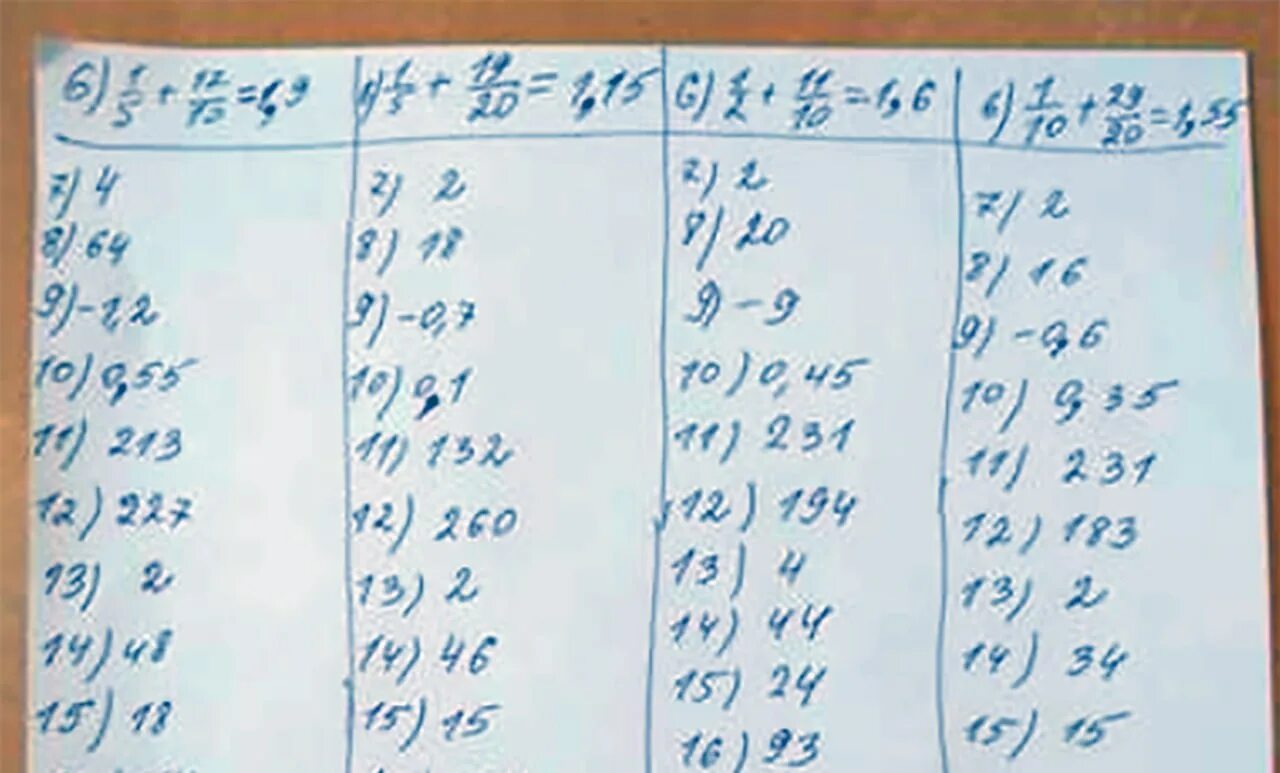 6) 1/5 + 17/10 = 1,9
1/5 + 19/20 = 1,15
6) 1/2 + 11/10 = 1,6
6) 1/10 + 29/20 = 1,55
7) 4
8) 64
9) -1,2
10) 0,55
11) 213
12) 227
13) 2
14) 48
15) 18
7) 2
8) 18
9) -0,7
10) 0,1
11) 132
12) 260
13) 2
14) 46
15) 15
7) 2
8) 20
9) -9
10) 0,45
11) 231
12) 194
13) 4
14) 44
15) 24
16) 93
7) 2
8) 16
9) -0,6
10) 0,35
11) 231
12) 183
13) 2
14) 34
15) 15